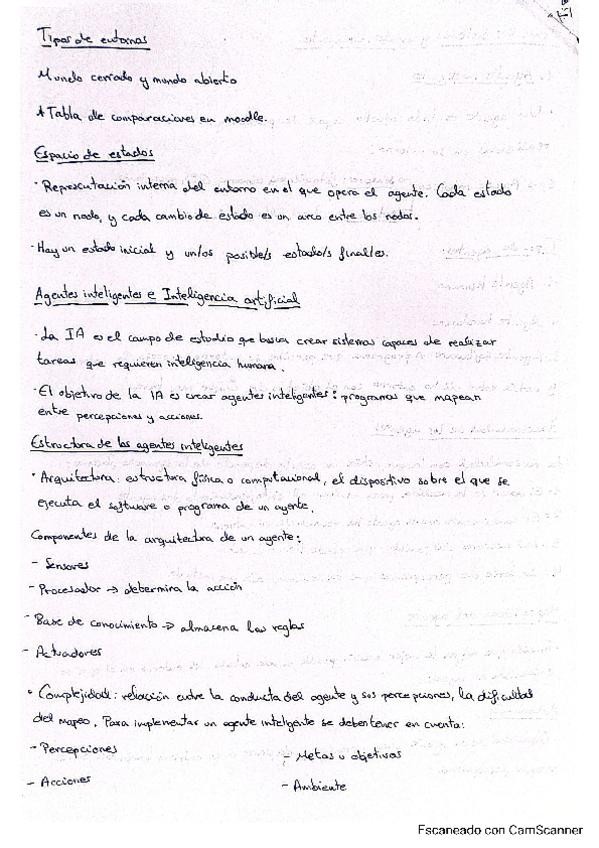 Tipos de entornos
Mundo cerrado y mundo abierto
* Tabla de comparaciones en moodle.
Espacio de estados
· Representación interna del entorno en el que opera el agente. Cada estado
es un nodo, y cada cambio de estado es un arco entre los nodos.
· Hay un estado inicial y un/os posible/s estado/s final/es.
Agentes inteligentes e Inteligencia artificial
· La IA es el campo de estudio que busca crear sistemas capaces de realizar
tareas que requieren inteligencia humana.
· El objetivo de la IA es crear agentes inteligentes: programas que mapean
entre percepciones y acciones.
Estructura de los agentes inteligentes
· Arquitectura: estructura física o computacional, el dispositivo sobre el que se
ejecuta el software o programa de un agente.
Componentes de la arquitectura de un agente:
- Sensores
- Procesador → determina la acción
- Base de conocimiento → almacena las reglas
- Actuadores
· Complejidad: relación entre la conducta del agente y sus percepciones, la dificultad
del mapeo. Para implementar un agente inteligente se deben tener en cuenta:
- Percepciones
- Metas u objetivos
- Acciones
- Ambiente
Escaneado con CamScanner